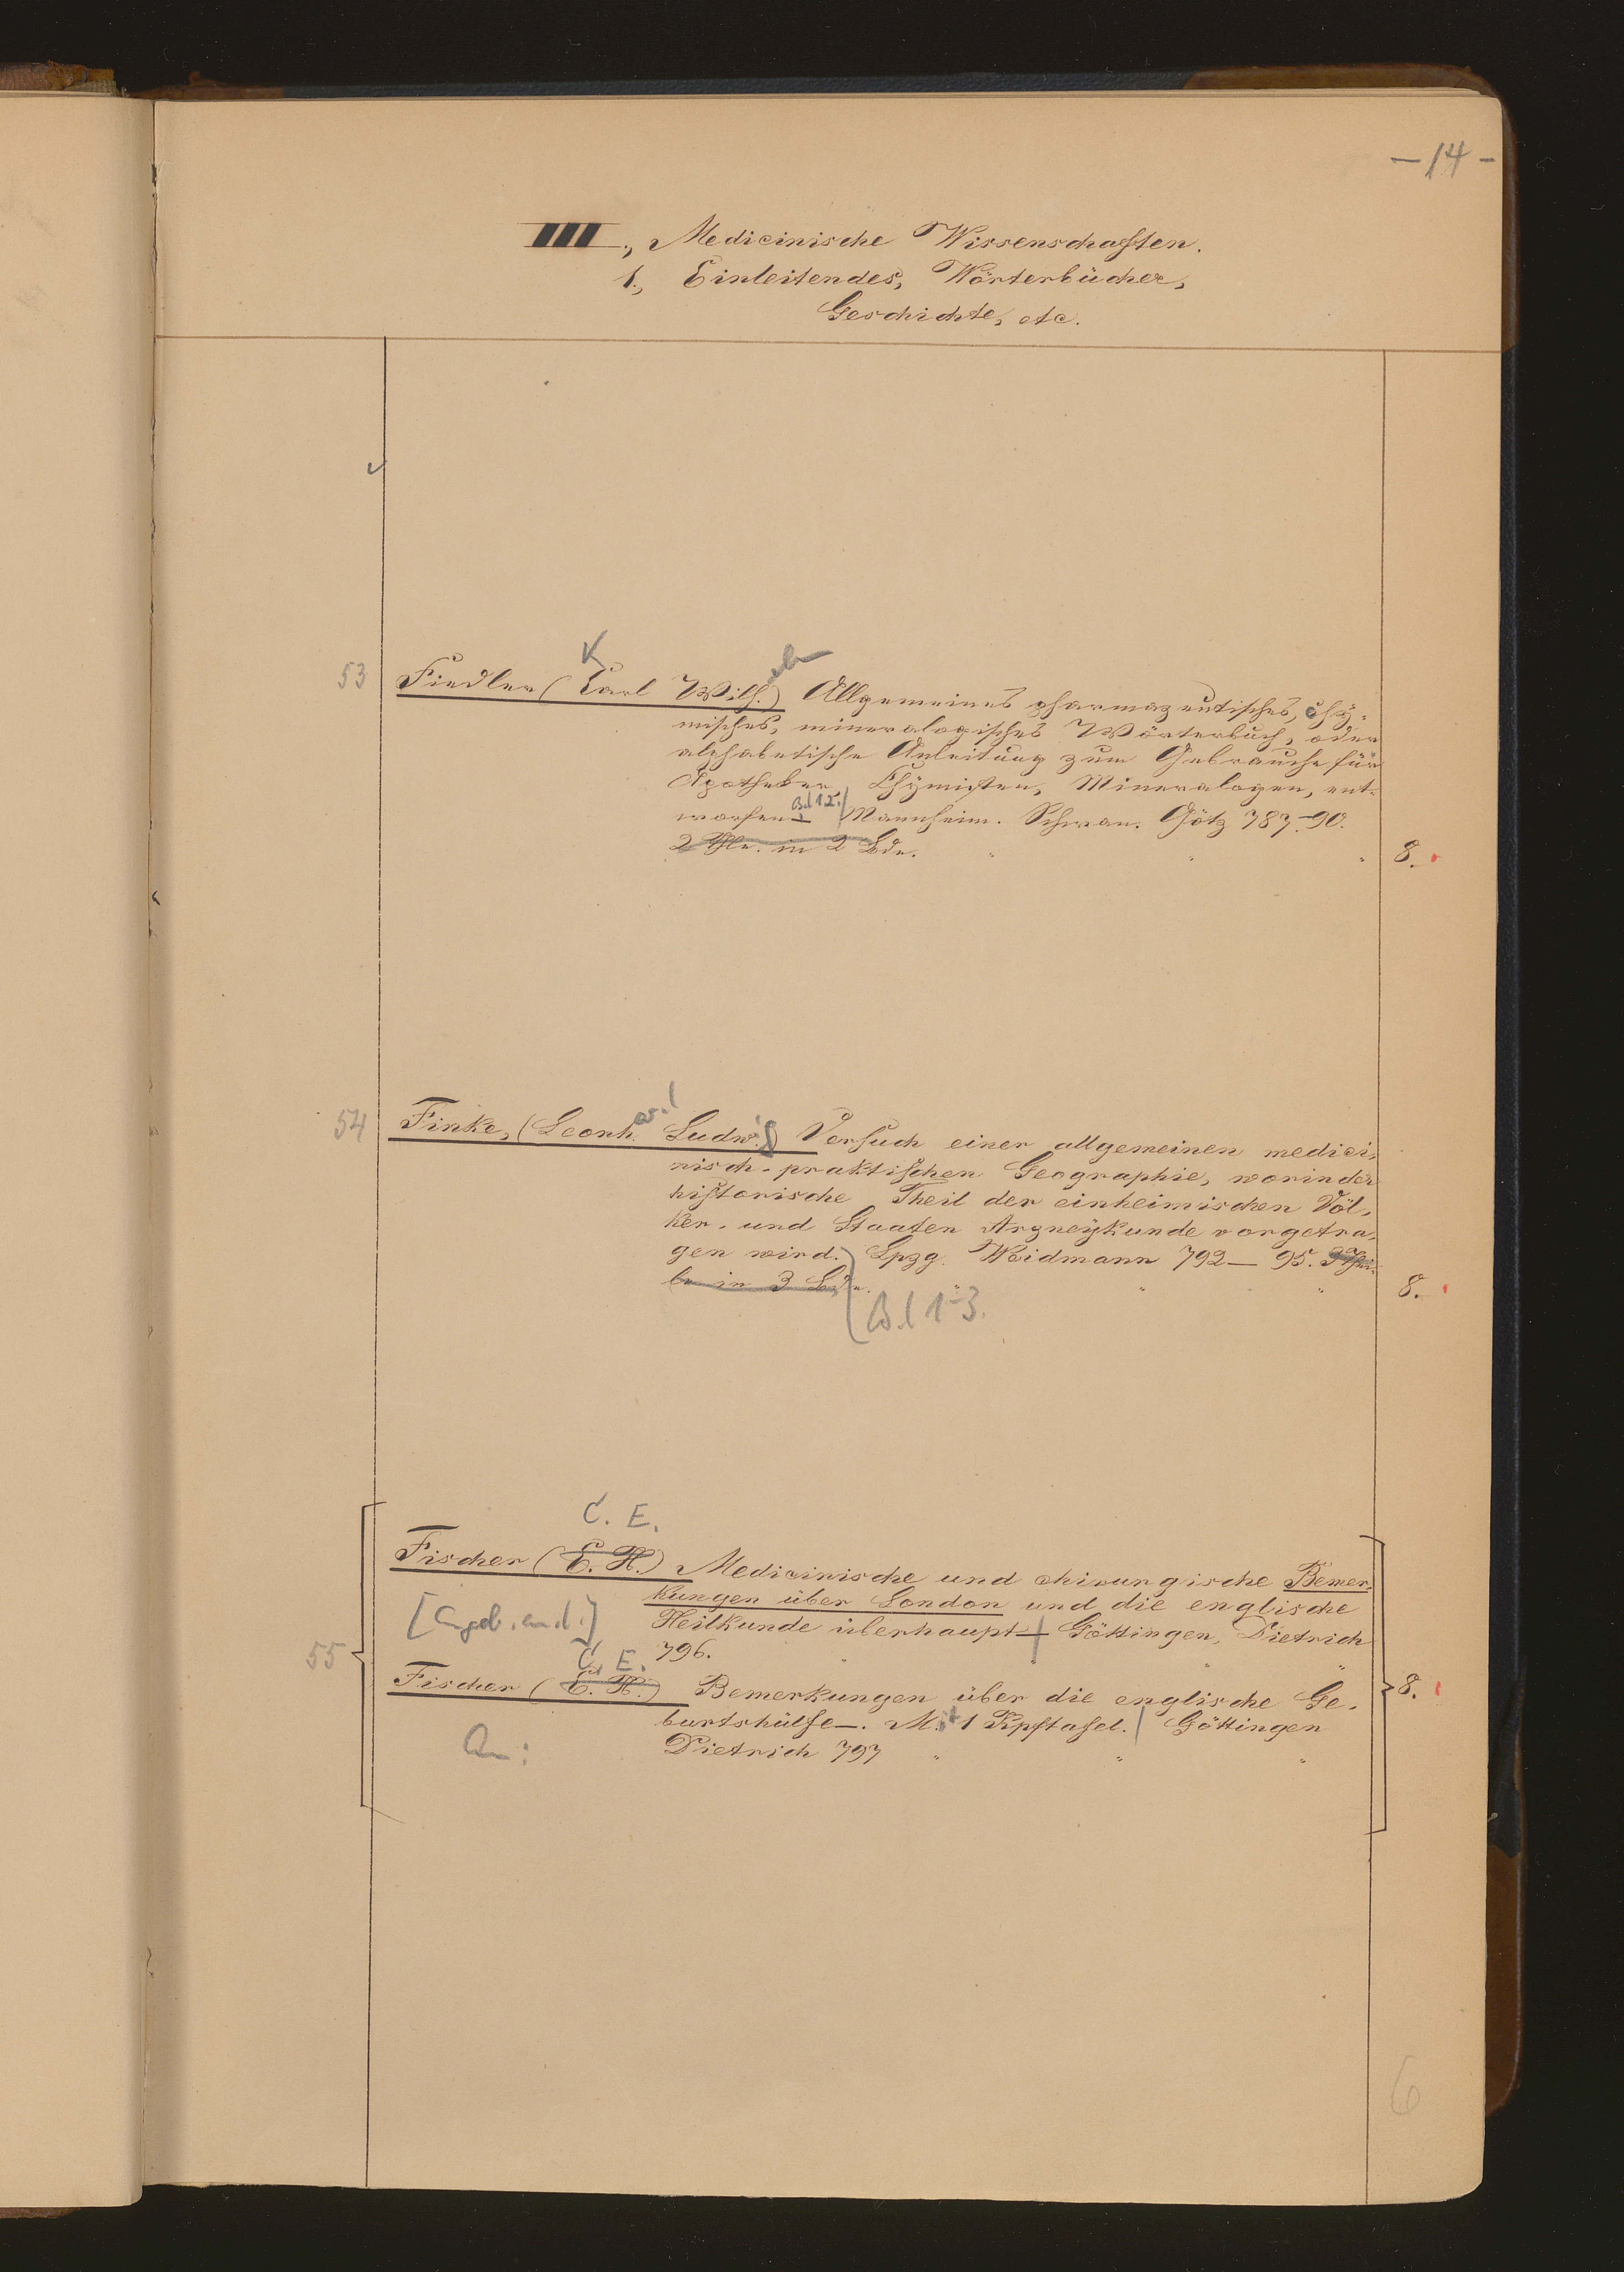 – 14 –
III., Medicinische Wissenschaften.
1., Einleitendes, Wörterbücher,
Geschichte, etc.
K
53 Fiedler (Carl Wilh.) Allgemeines pharmazeutisches, chÿ-
misches, mineralogisches Wörterbuch, oder
alphabetische Anleitung zum Gebrauche für
Apotheker, Chÿmisten, Mineralogen, ent-
Bd 1 2.
worfen – Mannheim. Schwan. Götz 787–90.
2 Thle. in 2 Bde. " " " 8.
54 Finke, (Leonh. Ludwig) Versuch einer allgemeinen medici-
nisch-praktischen Geographie, worin der
historische Theil der einheimischen Völ-
ker- und Staaten Arzneÿkunde vorgetra-
gen wird. Lpzg. Weidmann 792 – 95. 3 Thei-
le in 3 Bde. " " " 8.
Bd 1–3.
C. E.
Fischer (E. H.) Medicinische und chirurgische Bemer-
kungen über London und die englische
Heilkunde überhaupt – Göttingen, Dietrich
55 796. " " "
C. E.
Fischer (E. H.) Bemerkungen über die englische Ge- 8.
burtshülfe –. Mit 1 Kpftafel. Göttingen
An: Dietrich 797 " " "
6